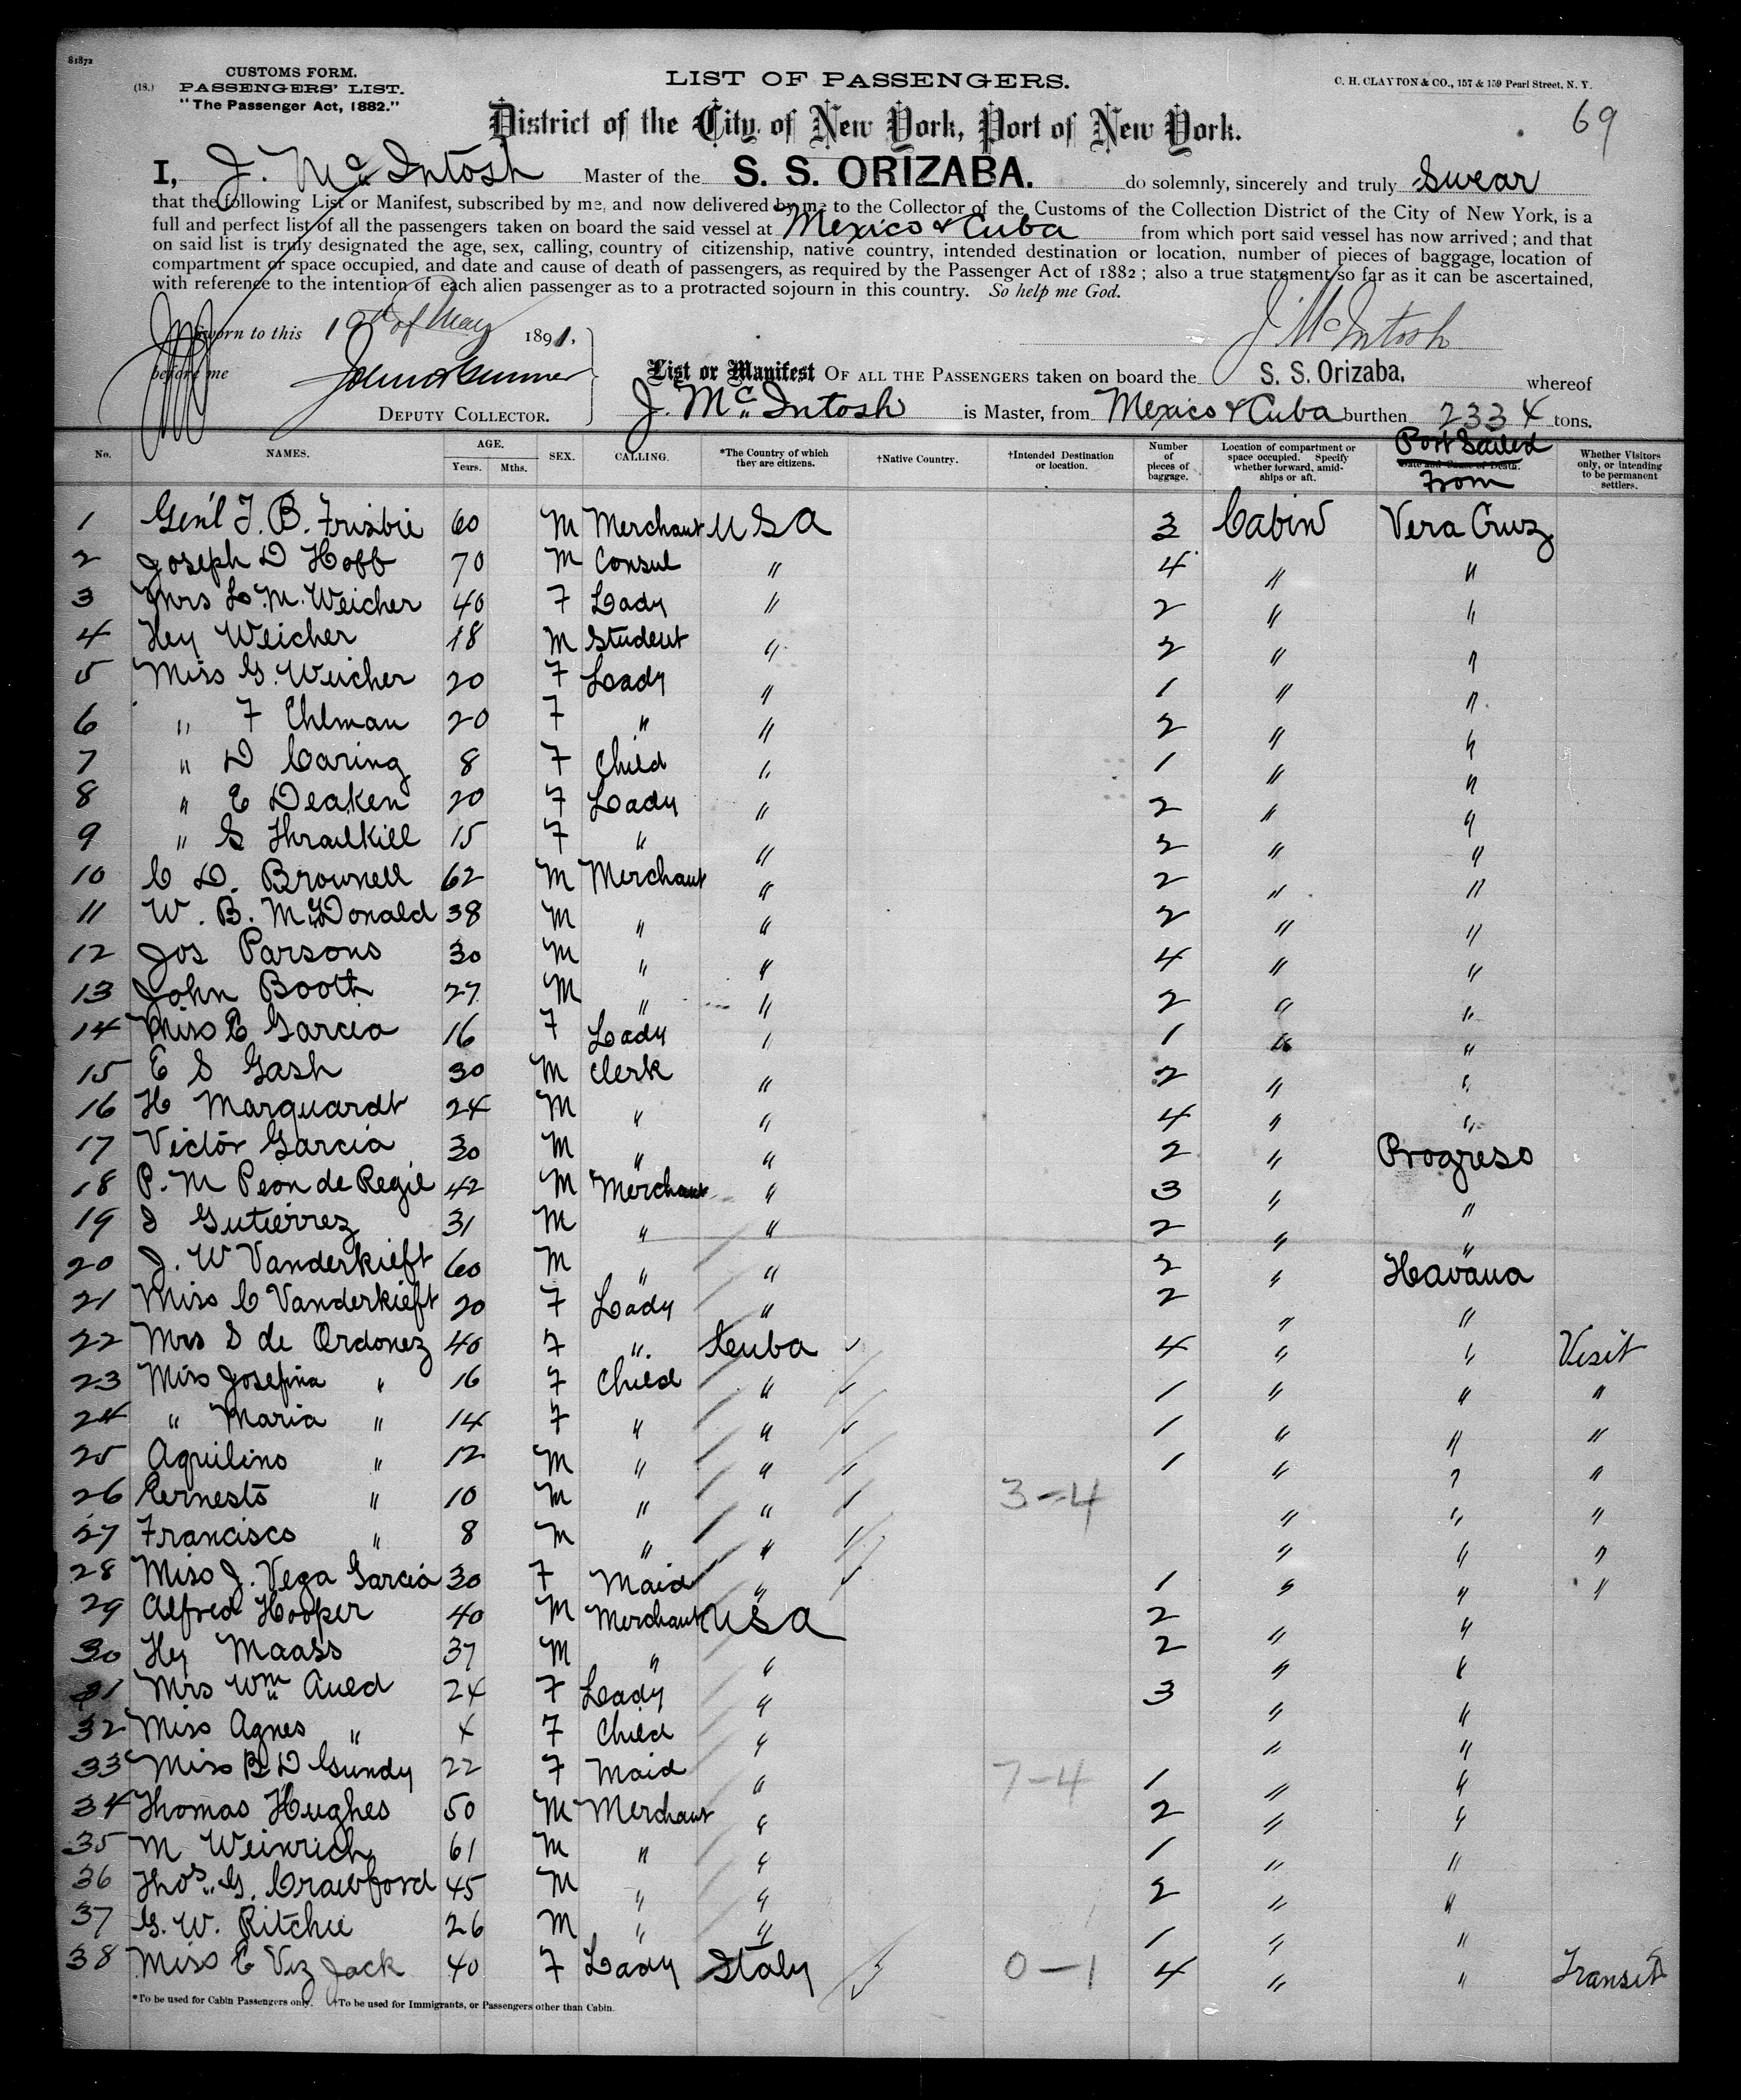 81872
(18.)
CUSTOMS FORM.
PASSENGERS' LIST.
"The Passenger Act, 1882."
LIST OF PASSENGERS.
C. H. CLAYTON & CO., 157 & 159 Pearl Street, N. Y.
69
District of the City of New York, Port of New York.
I, J. McIntosh Master of the S. S. ORIZABA. do solemnly, sincerely and truly Swear
that the following List or Manifest, subscribed by me, and now delivered by me to the Collector of the Customs of the Collection District of the City of New York, is a
full and perfect list of all the passengers taken on board the said vessel at Mexico & Cuba from which port said vessel has now arrived; and that
on said list is truly designated the age, sex, calling, country of citizenship, native country, intended destination or location, number of pieces of baggage, location of
compartment or space occupied, and date and cause of death of passengers, as required by the Passenger Act of 1882; also a true statement so far as it can be ascertained,
with reference to the intention of each alien passenger as to a protracted sojourn in this country. So help me God.
Sworn to this 19th of May 1891,
J McIntosh
before me
DEPUTY COLLECTOR.
List or Manifest OF ALL THE PASSENGERS taken on board the S. S. Orizaba, whereof
J. McIntosh is Master, from Mexico & Cuba burthen 2334 tons.
No. NAMES. AGE. Years. Mths. SEX. CALLING. *The Country of which they are citizens. †Native Country. †Intended Destination or location. Number of pieces of baggage. Location of compartment or space occupied. Specify whether forward, amidships or aft. Date and Cause of Death. Port Sailed From Whether Visitors only, or intending to be permanent settlers.
1 Gen'l J. B. Frisbie 60 M Merchant USA 3 Cabin Vera Cruz
2 Joseph D Hoff 70 M Consul " 4 " "
3 Mrs L. M. Weicher 40 F Lady " 2 " "
4 Hey Weicher 18 M Student " 2 " "
5 Miss G. Weicher 20 F Lady " 1 " "
6 " F Ehlman 20 F " " 2 " "
7 " D Caring 8 F Child " 1 " "
8 " E Deaken 20 F Lady " 2 " "
9 " S Thrailkill 15 F " " 2 " "
10 C D. Brownell 62 M Merchant " 2 " "
11 W. B. McDonald 38 M " " 2 " "
12 Jos Parsons 30 M " " 4 " "
13 John Booth 27 M " " 2 " "
14 Miss E Garcia 16 F Lady " 1 " "
15 E S Gash 30 M Clerk " 2 " "
16 H Marquardt 24 M " " 4 " "
17 Victor Garcia 30 M " " 2 " Progreso
18 P. M Peon de Regil 42 M Merchant " 3 " "
19 I Gutierrez 31 M " " 2 " "
20 J. W Vanderkieft 60 M " " 2 " Havana
21 Miss C Vanderkieft 20 F Lady " 2 " "
22 Mrs S de Ordonez 40 F " Cuba 4 " " Visit
23 Miss Josefina " 16 F Child " 1 " " "
24 " Maria " 14 F " " 1 " " "
25 Aquilino " 12 M " " 1 " " "
26 Ernesto " 10 M " " 3-4 " " "
27 Francisco " 8 M " " " " "
28 Miss J. Vega Garcia 30 F Maid " 1 " " "
29 Alfred Hooper 40 M Merchant USA 2 " "
30 Hy Maass 37 M " " 2 " "
31 Mrs Wm Auld 24 F Lady " 3 " "
32 Miss Agnes " 4 F Child " " "
33 Miss B D Gundy 22 F Maid " 7-4 1 " "
34 Thomas Hughes 50 M Merchant " 2 " "
35 M Weinrich 61 M " " 1 " "
36 Thos. G. Crawford 45 M " " 2 " "
37 G. W. Ritchie 26 M " " 1 " "
38 Miss E Viz Jack 40 F Lady Italy 0-1 4 " " Transit
*To be used for Cabin Passengers only. †To be used for Immigrants, or Passengers other than Cabin.